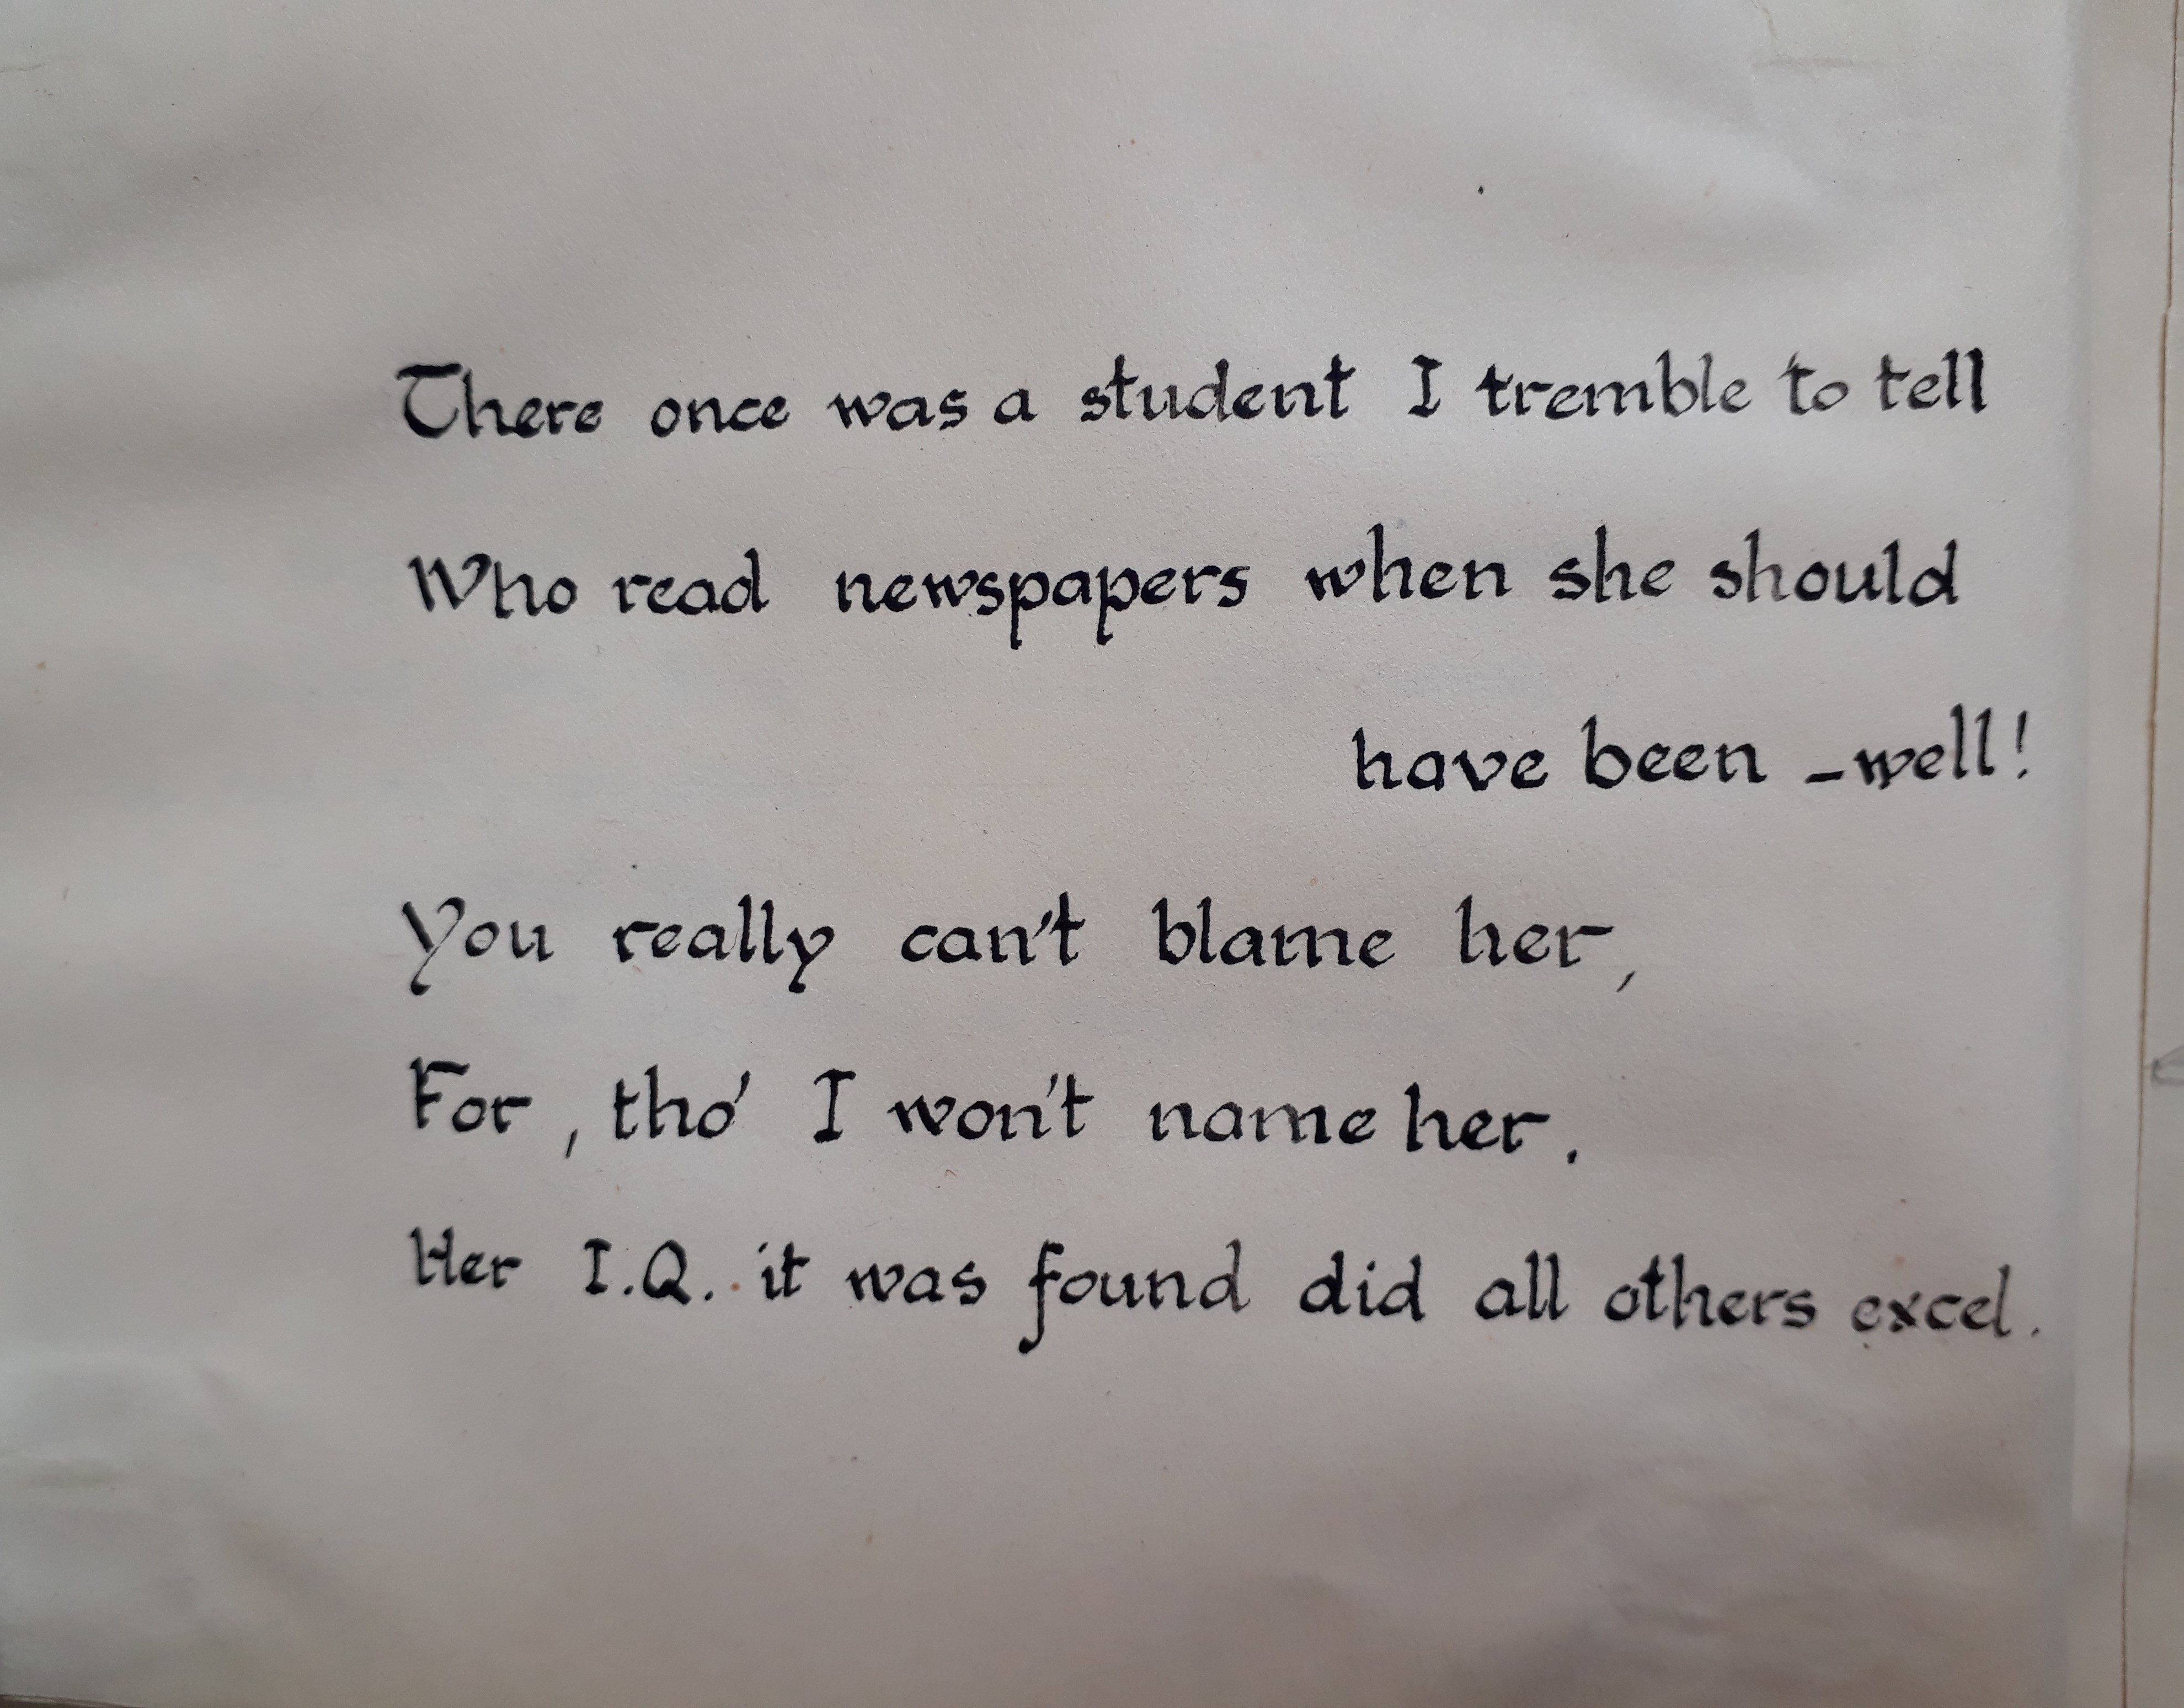 There once was a student I tremble to tell
Who read newspapers when she should
have been – well!
You really can't blame her,
For, tho' I won't name her.
Her I.Q. it was found did all others excel.